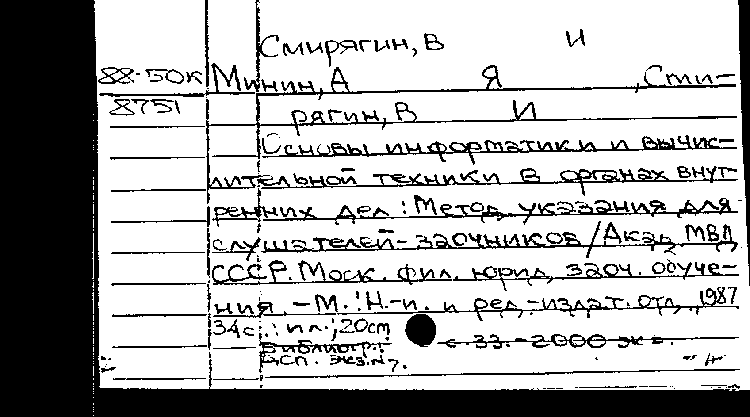 Смирягин, В И
88-50к Минин, А Я , Сми-
8751 рягин, В И
Основы информатики и вычис-
лительной техники в органах внут-
ренних дел : Метод. указания для
слушателей-заочников / Акад. МВД
СССР. Моск. фил. юрид. заоч. обуче-
ния. - М. : Н.-и. и ред.-издат. отд., 1987
34с. : ил. ; 20cm
Библиогр.: с. 33. - 2000 эк з.
ДСП. экз.N7.